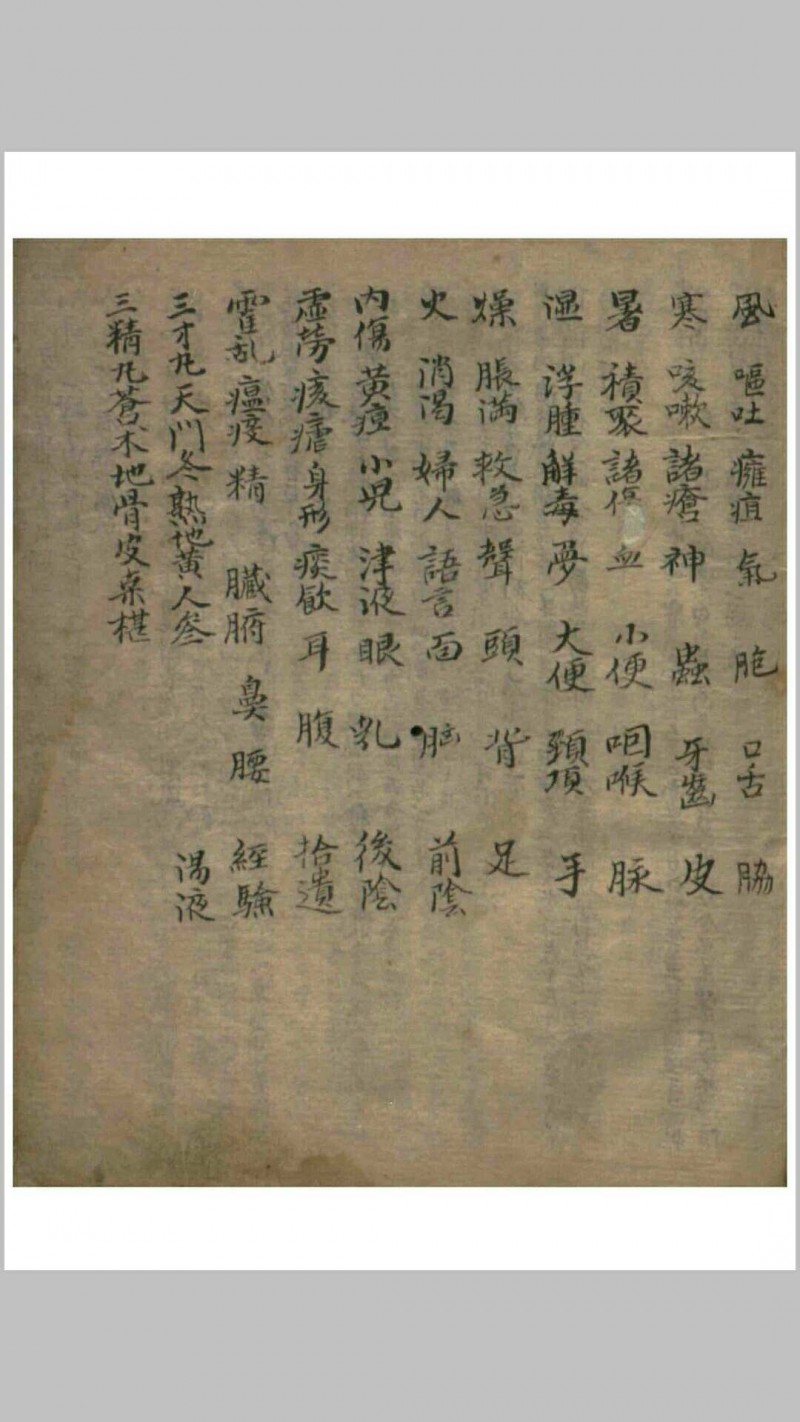 風 嘔吐 癰疽 氣 胞 口舌 脇
寒 咳嗽 諸瘡 神 蟲 牙齒 皮
暑 積聚 諸傷 血 小便 咽喉 脉
湿 浮腫 解毒 夢 大便 頸項 手
燥 脹滿 救急 聲 頭 背 足
火 消渴 婦人 語言 面 胸 前陰
内傷 黄疸 小児 津液 眼 乳 後陰
虛勞 痎瘧 身形 痰飮 耳 腹 拾遺
霍乱 瘟疫 精 臟腑 鼻 腰 経驗
三才丸 天門冬 熟地黄 人参 湯液
三精丸 蒼朮 地骨皮 桒椹